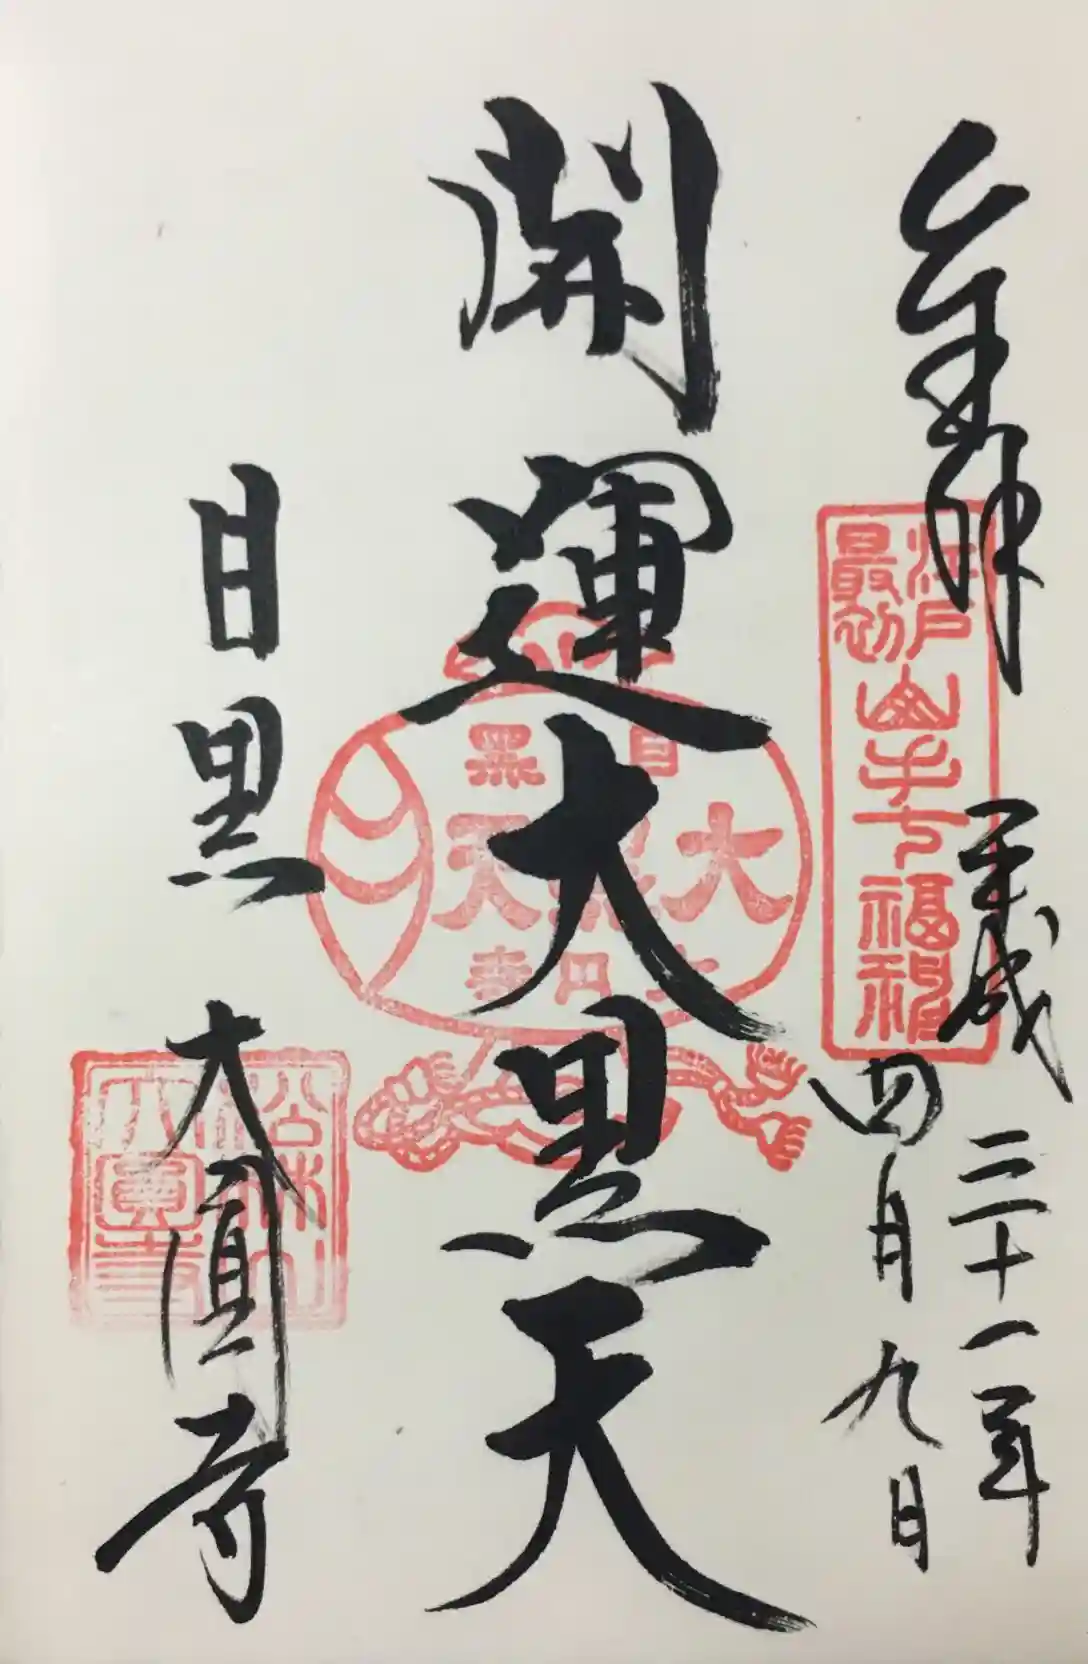 奉拝
平成三十一年
四月九日
開運大黒天
目黒 大圓寺
江戸
最初
山手七福神
目黒
大黒天
大円寺
松林山
大圓寺